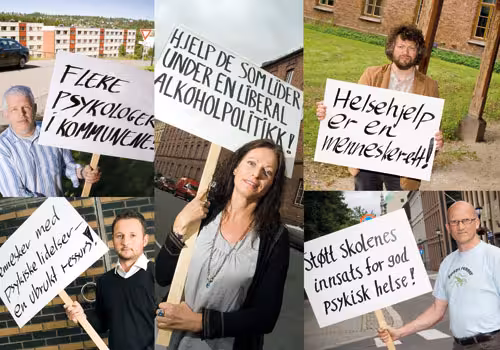 FLERE
PSYKOLOGER
I KOMMUNENE!
HJELP DE SOM LIDER
UNDER EN LIBERAL
ALKOHOLPOLITIKK!
Helsehjelp
er en
menneskerett!
mennesker med
psykiske lidelser -
en ubrukt ressurs!
Støtt skolenes
innsats for god
psykisk helse!